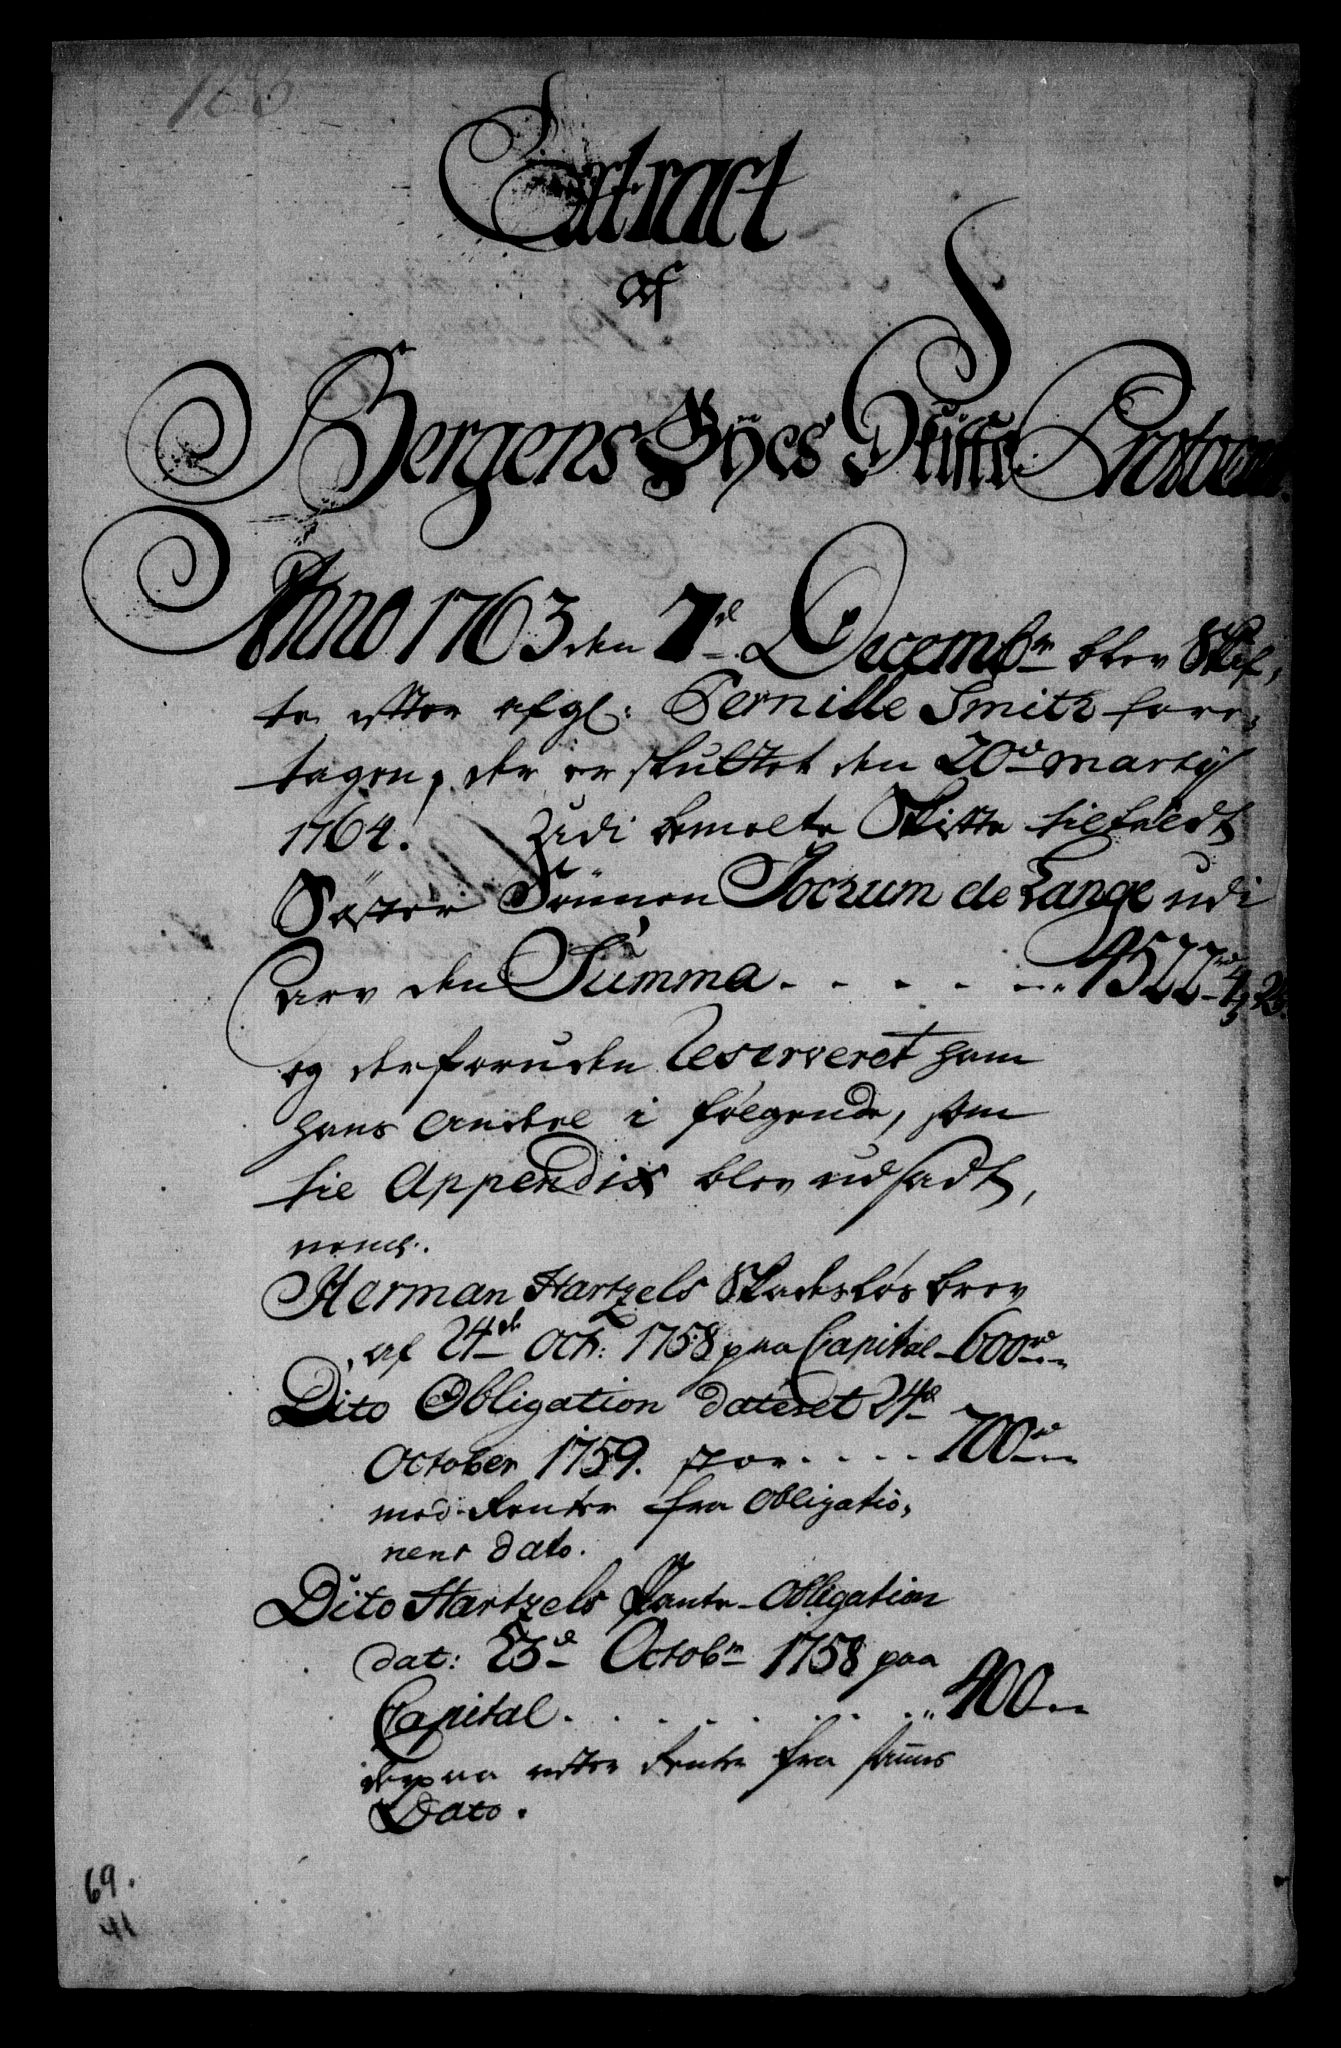 Extract
af
Bergens Byes Skifte Protocol.
Anno 1763 den 7d Decembr blev Skif,
te efter afgl: Pernille Smith fore,
tagen, der er sluttet den 20d Martij
1764. Udi bemelte Skifte tilfaldt
Søster Sønnen Jochum de Lange udi
Arv den Summa . . . . . 4522rd 4
og derforuden Reserveret ham
hans Andeel i følgende, som
til Appendix blev udsadt,
neml:
Herman Hartzels Skadesløs brev
af 24de Oct: 1758 paa Capital 600rd
Dito Obligation dateret 24d
October 1759. stor . . . . 700rd
med Renter fra Obligatio,
nens dato.
Dito Hartzels Pante-Obligation
dat: 23d Octobr 1758 paa
Capital . . . . . . . . 400
derpaa rester Rente fra samme
Dato.
69.
41